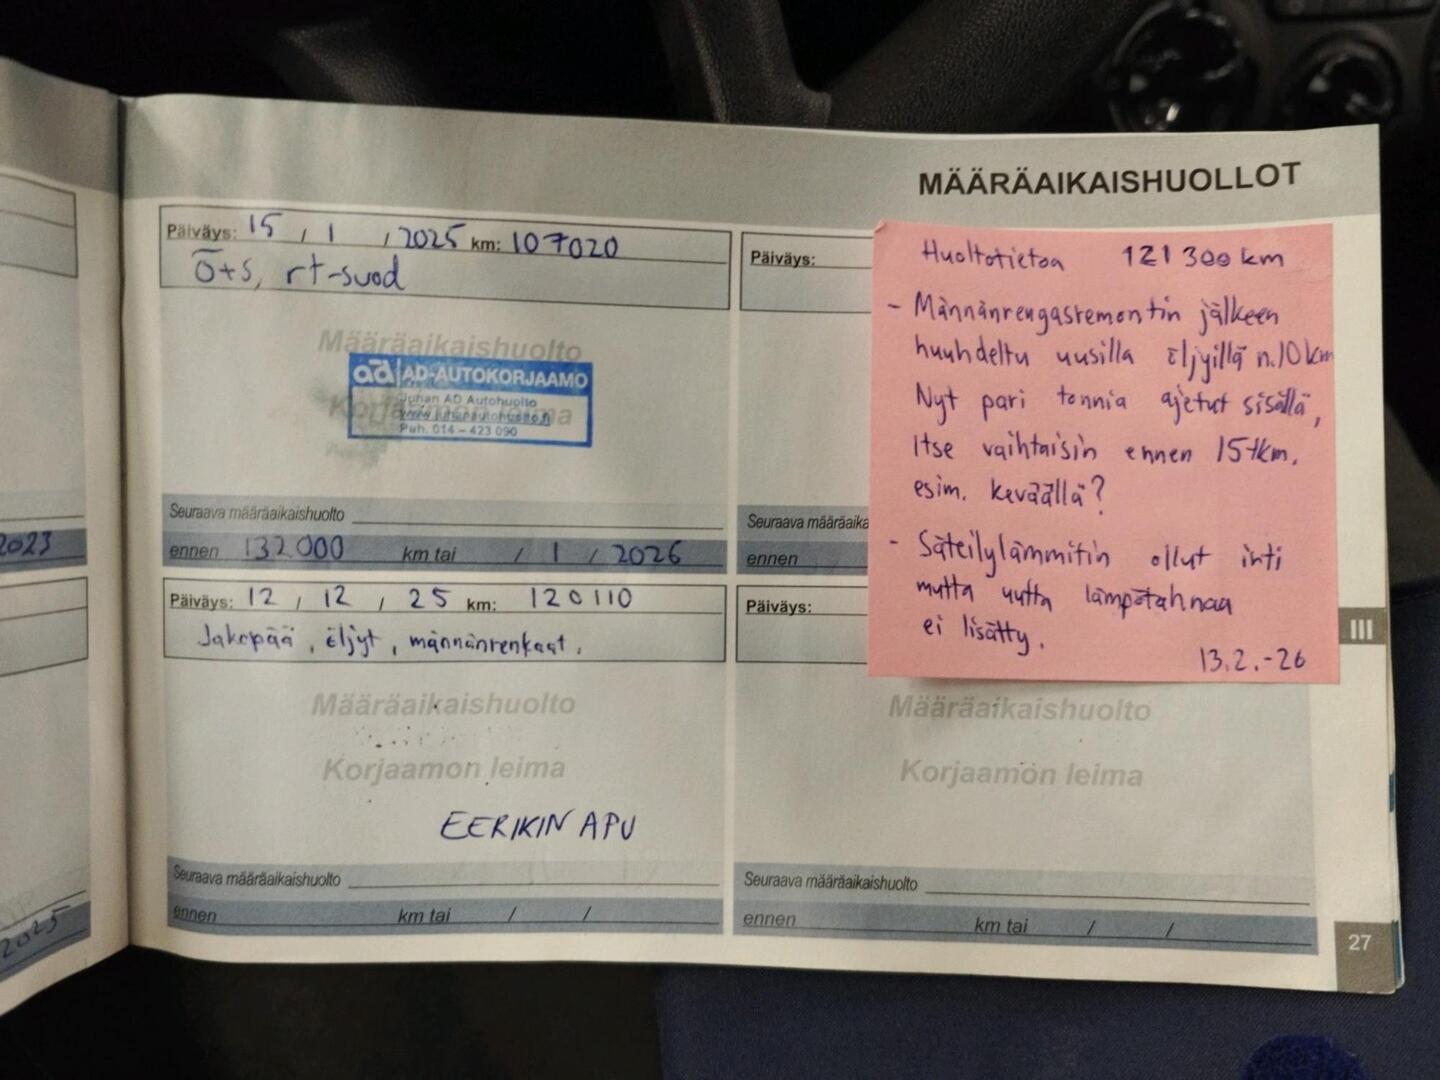 MÄÄRÄAIKAISHUOLLOT
2023
2025
Päiväys: 15 / 1 / 2025 km: 107020
Ö+S, rt-suod
Määräaikaishuolto
Korjaamon leima
ad AD-AUTOKORJAAMO
Juhan AD Autohuolto
www.juhanautohuolto.fi
Puh. 014 – 423 090
Seuraava määräaikaishuolto
ennen 132000 km tai / 1 / 2026
Päiväys: 12 / 12 / 25 km: 120110
Jakopää, öljyt, männänrenkaat.
Määräaikaishuolto
Korjaamon leima
EERIKIN APU
Seuraava määräaikaishuolto
ennen km tai / /
Päiväys:
Seuraava määräaika
ennen
Päiväys:
Määräaikaishuolto
Korjaamon leima
Seuraava määräaikaishuolto
ennen km tai / /
Huoltotietoa 121300 km
- Männänrengasremontin jälkeen
huuhdeltu uusilla öljyillä n.10km
Nyt pari tonnia ajetut sisällä,
Itse vaihtaisin ennen 15tkm.
esim. keväällä?
- Säteilylämmitin ollut irti
mutta uutta lämpötahnaa
ei lisätty.
13.2.-26
III
27